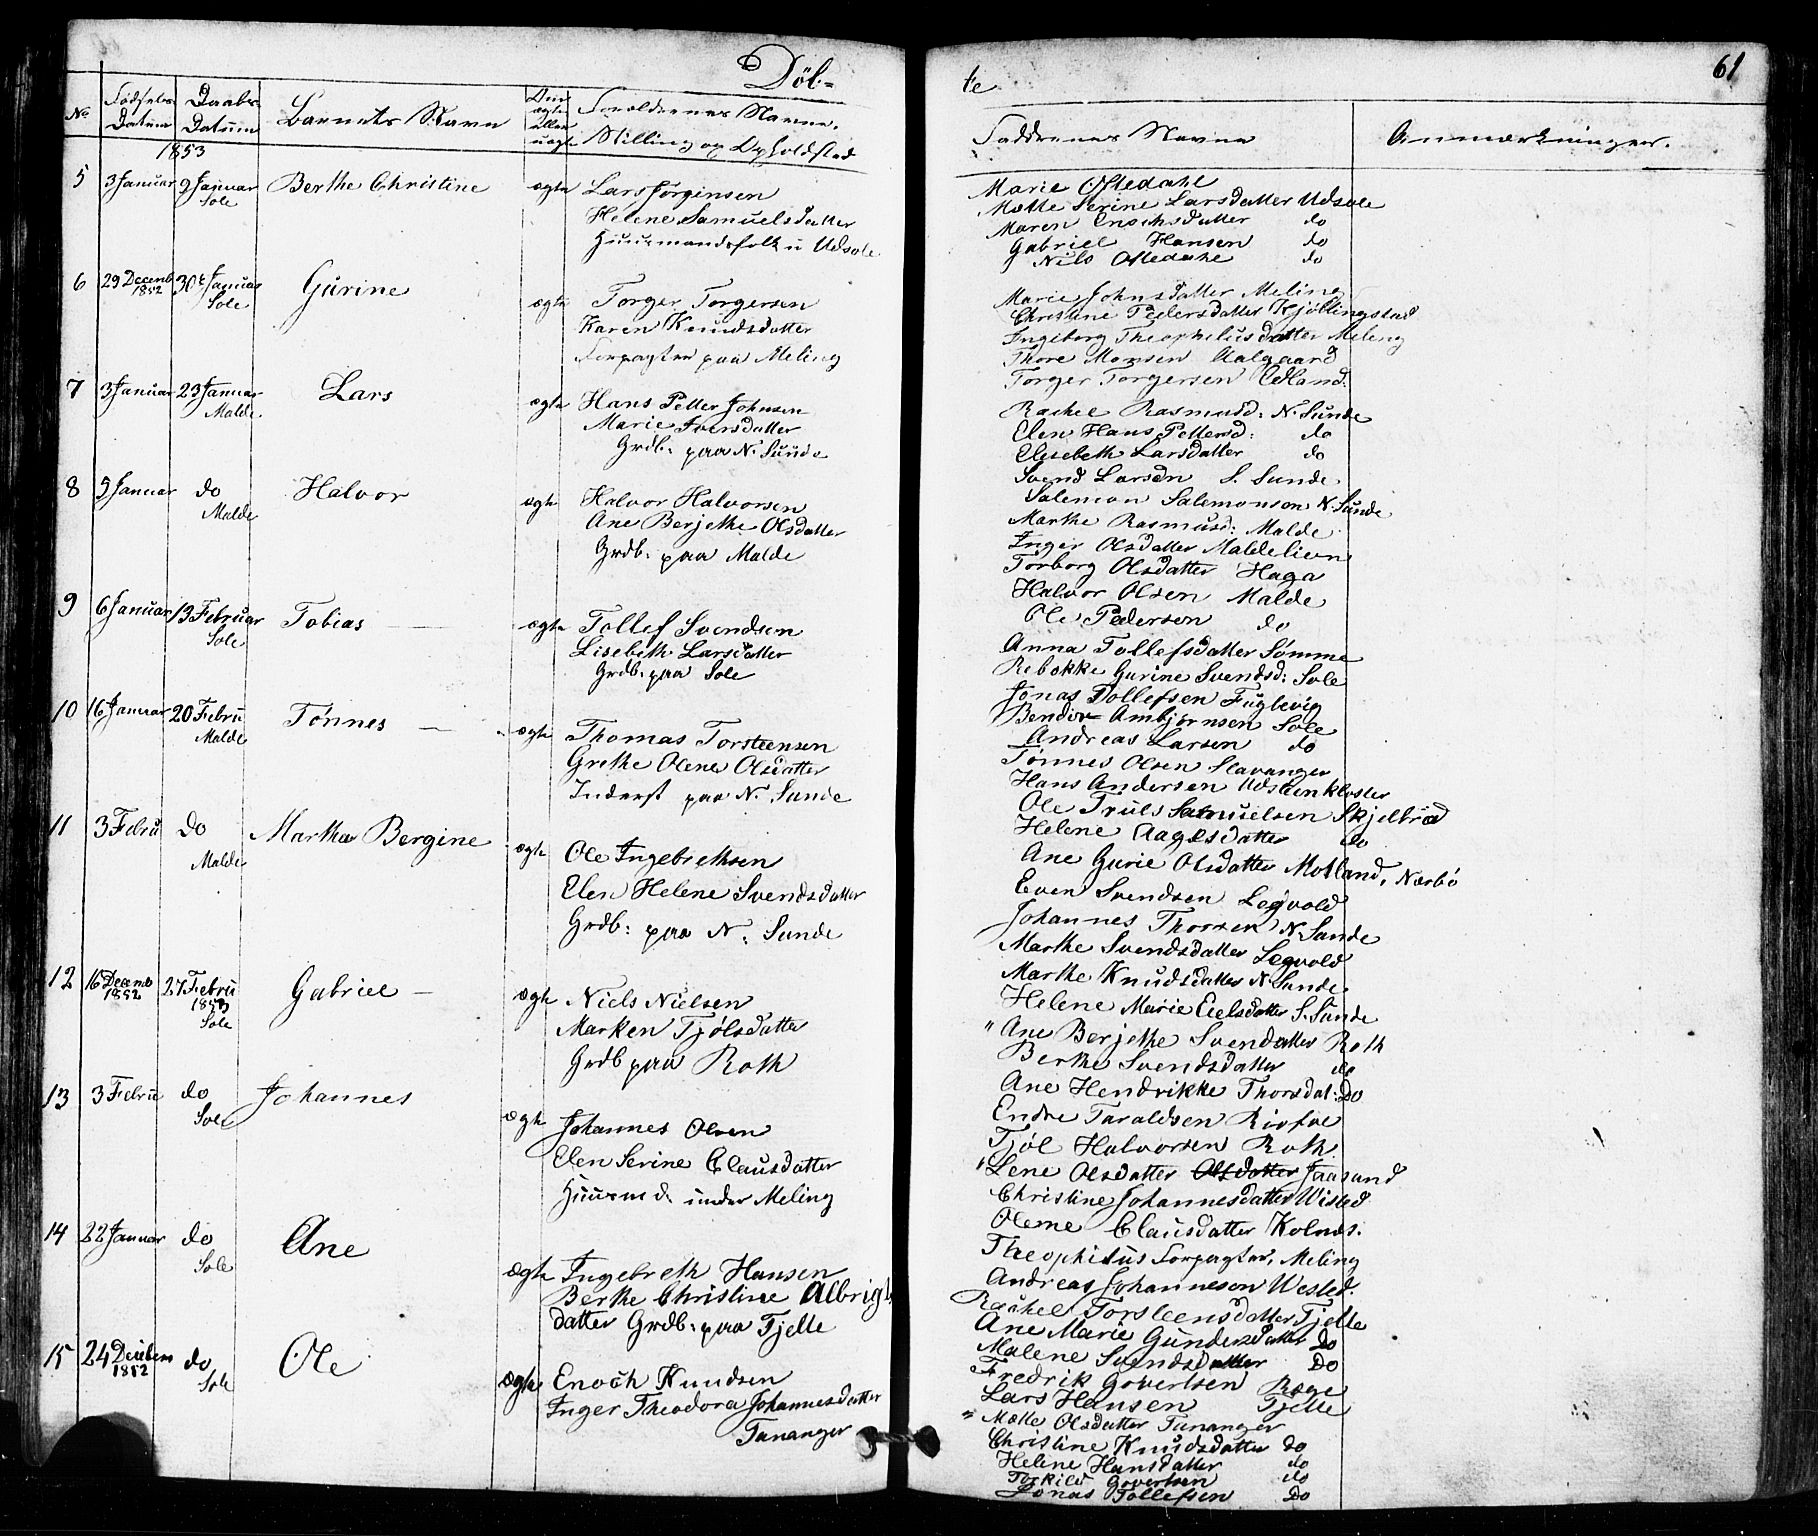 Døb-
No
Fødsels Datum
Daabs Datum
Barnets Navn
Om ægte eller uægte
Forældrenes Navne, Stilling og Opholdsted
1853
5 3 Januar 9 Januar Sole Berthe Christine ægte Lars Jørgensen
Helene Samuelsdatter
Huusmandsfolk u Udsole
6 29 Decemb 1852 30t Januar Sole Gurine ægte Torger Torgersen
Karen Knudsdatter
Forpagter paa Meling
7 3 Januar 23 Januar Malde Lars ægte Hans Petter Johnsen
Marie Iversdatter
Grdb: paa N. Sunde
8 9 Januar do Malde Halvor ægte Halvor Halvorsen
Ane Berjethe Olsdatter
Grdb: paa Malde
9 6 Januar 13 Februar Sole Tobias ægte Tollef Svendsen
Lisebeth Larsdatter
Grdb: paa Sole
10 16 Januar 20 Febru Malde Tønnes ægte Thomas Torsteensen
Grethe Olene Olsdatter
Inderst paa N. Sunde
11 3 Febru do Malde Martha Bergine ægte Ole Ingebrethsen
Elen Helene Svendsdatter
Grdb: paa N: Sunde
12 16 Decemb 1852 27 Febru 1853 Sole Gabriel ægte Niels Nielsen
Marken Tjølsdatter
Grdb paa Roth
13 3 Febru do Sole Johannes ægte Johannes Olsen
Elen Serine Clausdatter
Huusmd. under Meling
14 22 Januar do Sole Ane ægte Ingebreth Hansen
Berthe Christine Albrigt
datter Grdb: paa Tjelte
15 24 Decebm 1852 do Sole Ole ægte Enoch Knudsen
Inger Theodora Johannesdatter
Tananger
te
61
Faddernes Navne
Anmærkninger.
Marie Oftedahl
Mette Serine Larsdatter Udsole
Maren Enochsdatter do
Gabriel Hansen do
Nils Oftedahl do
Marie Johnsdatter Meling
Christine Pedersdatter Kjøllingstad
Ingeborg Theophilusdatter Meling
Thore Monsen Aalgaard
Torger Torgersen Edland.
Rachel Rasmusd: N. Sunde
Elen Hans Pettersd: do
Elisebeth Larsdatter do
Svend Larsen S. Sunde
Salemon Salemonson N. Sunde
Marthe Rasmusd: Malde
Inger Olsdatter Maldelien
Torborg Olsdatter Haga
Halvor Olsen Malde
Ole Pedersen do
Anna Tollefsdatter Sømme
Rebekke Gurine Svendsd: Sole
Jonas Tollefsen Fuglevig
Bendix Ambjørnsen Sole
Andreas Larsen do
Tønnes Olsen Stavanger
Hans Andersen Udsteenkloster
Ole Truls Samuelsen Skjelbred
Helene Aagesdatter do
Ane Gurie Olsdatter Motland, Nærbø
Even Svendsen Legvold
Johannes Thorsen N. Sunde
Marthe Svendsdatter Legvold
Marthe Knudsdatter N. Sunde
Helene Marie Eielsdatter S. Sunde
" Ane Berjethe Svendatter Roth
Berthe Svendsdatter do
Ane Hendrikke Thorsdat: Do
Endre Taraldsen Risfoe
Tjøl Halvorsen Roth
" Lene Olsdatter Olsdatter Jaasund
Christine Johannesdatter Wisted
Oleme Clausdatter Kolnes.
Theophilus Forpagter, Meling
Andreas Johanneson Wested.
Rachel Torsteensdatter Tjelte
Ane Marie Gundersdatter Do
Malene Svendsdatter Do
Fredrik Govertsen Ræge
Lars Hansen Tjelte
" Mette Olsdatter Tananger
Christine Knudsdatter do
Helene Hansdatter do
Torkild Govertsen do
Jonas Tollefsen Do